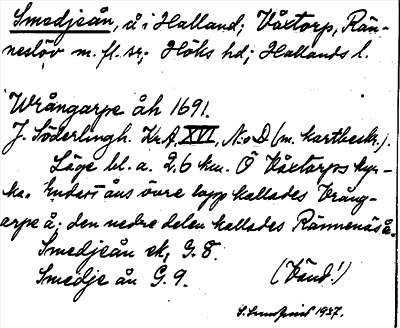 Smedjeån, å i Halland; Våxtorp, Rän-
neslöv m. fl. sr; Höks hd; Hallands l.
Wrångarpe åh 1691.
J. Söderlingh. Kr.A, XVI, N:o D (m. kartbeskr.).
Läge bl. a. 2,6 km. Ö Våxtorps kyr-
ka. Endast åns övre lopp kallades Vrång-
arpe å; den nedre delen kallades Rännenäs å.
Smedjeån ek, G. 8.
Smedje ån G. 9. (Vänd!)
1937.